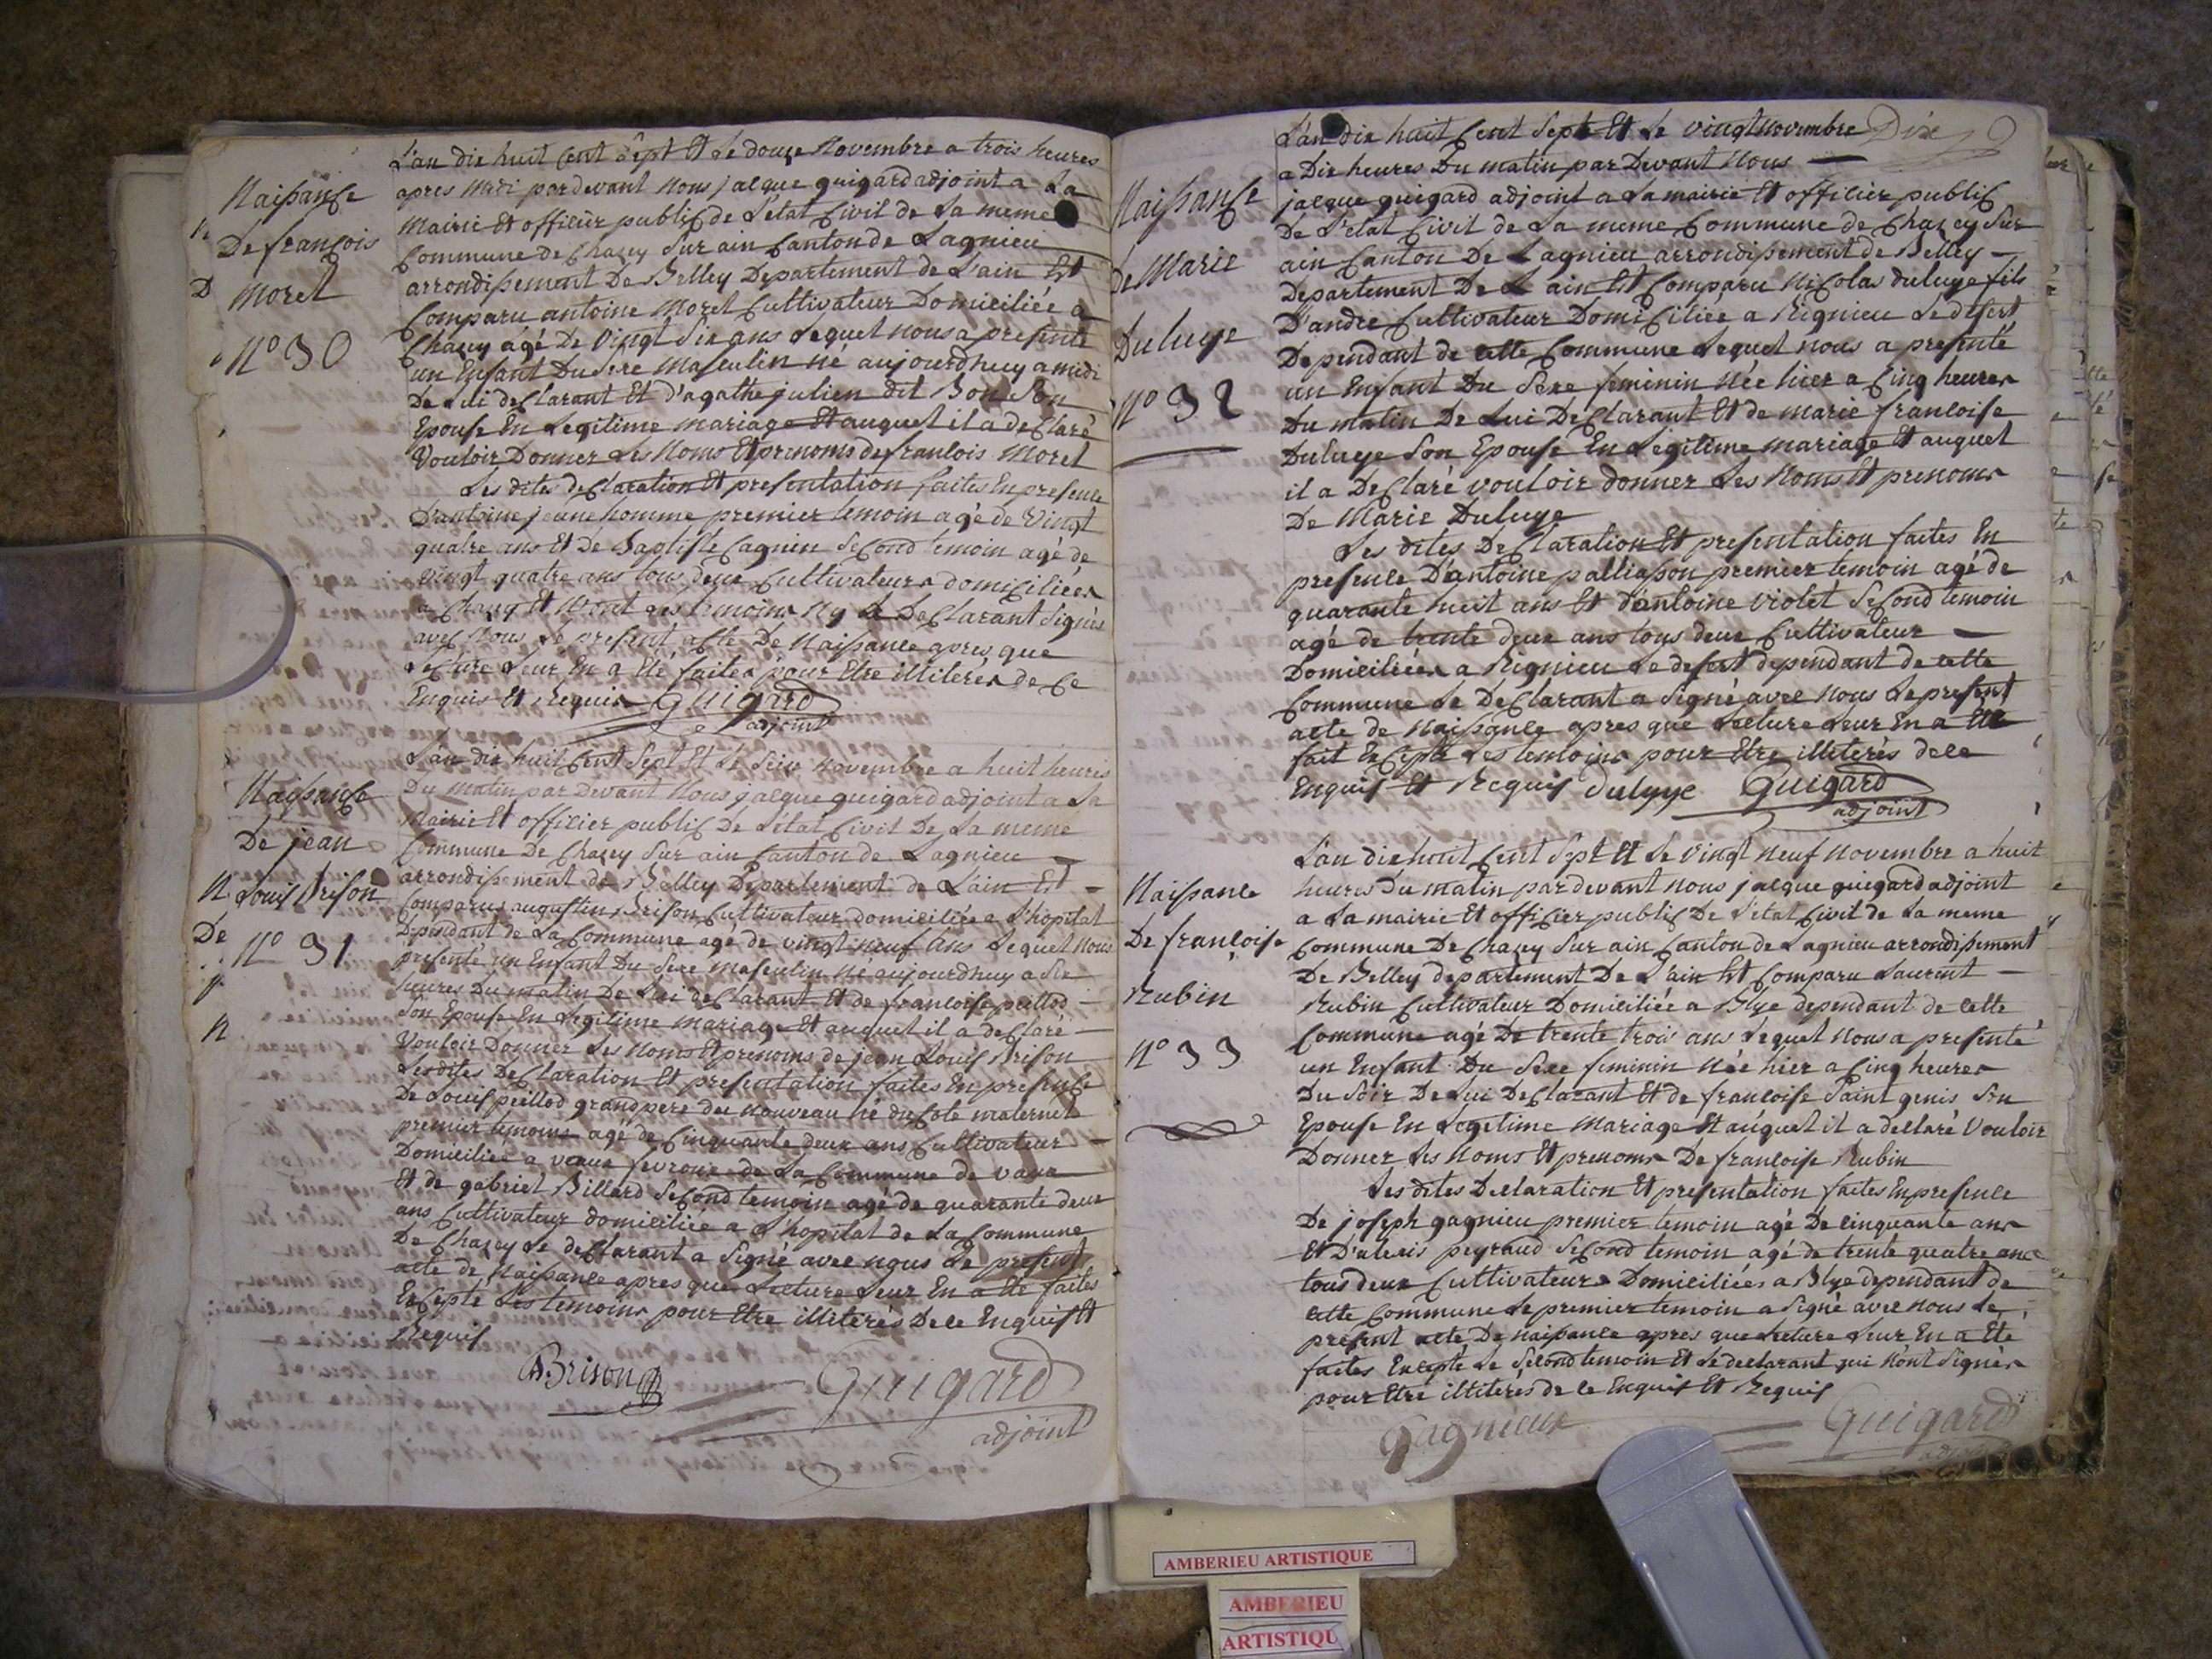 Naissance
De françois
moret
N° 30
L'an dix huit Cent sept Et Le douze Novembre a trois heures
apres midi pardevant Nous jacque guigard adjoint a La
Mairie Et officier public de L'etat Civil de La meme
Commune de Chazey Sur ain Canton de Lagnieu
arrondissement De Belley Departement de L'ain Est
Comparu antoine Moret Cultivateur Domiciliée a
Chazey agé De Vingt Six ans Lequel nous a presenté
un Enfant Du Sexe Masculin né aujourdhuy a midi
De Lui deClarant Et d'agathe julien dit Bon Son
Epouse En Legitime mariage Et auquel il a deClaré
Vouloir Donner Les Noms Et prenoms de francois Moret
Les dites deClaration Et presentation faites En presence
D'antoine jeune homme premier temoin agé de Vingt
quatre ans Et De Baptiste Cagnin SeCond temoin agé de
Vingt quatre ans tous deux Cultivateurs domiciliées
a Chazey Et N'ont Les temoins Ny Le DeClarant Signés
avec Nous Le present acte De Naissance apres que
Lecture Leur En a Eté faites pour Etre illiterés de Ce
Enquis Et Requis Guigard
adjoint
Naissance
De jean
Louis Brison
N° 31
L'an dix huit Cent Sept Et Le Seize Novembre a huit heures
Du matin par Devant Nous jacque guigard adjoint a La
Mairie Et officier public De L'etat Civil De La meme
Commune De Chazey Sur ain Canton de Lagnieu
arrondissement de Belley Departement de L'ain Est
Comparus augustin Brison Cultivateur domiciliée a L'hopital
Dependant de La Commune agé de vingt neuf Ans Lequel Nous
presenté un Enfant Du Sexe masculin né aujourdhuy a Six
heures Du matin De Lui deClarant Et de francoise peillod
Son Epouse En Legitime Mariage Et auquel il a deClaré
Vouloir Donner Les Noms Et prenoms de jean Louis Brison
Lesdites DeClaration Et presentation faites En presence
De Louis peillod grand pere du Nouveau né du Coté maternel
premier temoins agé de Cinquante deux ans Cultivateur
Domiciliée a vaux fevroux de La Commune de vaux
Et de gabriel Billard SeCond temoin agé de quarante deux
ans Cultivateur domiciliée a L'hopital de La Commune
De Chazey Le deClarant a Signé avec nous Le present
acte de Naissance apres que Lecture Leur En a Eté faites
Excepté Les temoins pour Etre illiterés De ce Enquis Et
Requis
Brison Guigard
adjoint
Naissance
de Marie
Duluye
N° 32
L'an dix huit Cent Sept Et Le vingt novembre Dix
a Dix heures Du matin par Devant Nous
jacque guigard adjoint a La mairie Et officier public
De L'etat Civil de La meme Commune de Chazey Sur
ain Canton De Lagnieu arrondissement de Belley
Departement De L'ain Est Comparu Nicolas duluye fils
D'andre Cultivateur Domiciliée a Rignieu Le desert
Dependant de cette Commune Lequel nous a presenté
un Enfant Du Sexe feminin Née hier a Cinq heures
Du matin De Lui DeClarant Et de marie francoise
Duluye Son Epouse En Legitime mariage Et auquel
il a DeClaré vouloir donner Les Noms Et prenoms
De Marie Duluye
Les dites DeClaration Et presentation faites En
presence D'antoine palliasson premier temoin agé de
quarante huit ans Et d'antoine violet SeCond temoin
agé de trente deux ans tous deux Cultivateur
Domiciliées a Rignieu Le desert dependant de cette
Commune Le DeClarant a Signé avec Nous Le present
acte de Naissance apres que Lecture Leur En a Eté
fait Excepté Les temoins pour Etre illiterés de ce
Enquis Et Requis Duluye Guigard
adjoint
Naissance
De francoise
Rubin
N° 33
L'an dix huit Cent Sept Et Le Vingt Neuf Novembre a huit
heures Du matin par devant nous jacque guigard adjoint
a La mairie Et officier public De L'etat Civil de La meme
Commune De Chazey Sur ain Canton de Lagnieu arrondissement
De Belley departement De L'ain Est Comparu Laurent
Rubin Cultivateur Domiciliée a Blye dependant de cette
Commune agé De trente trois ans Lequel Nous a presenté
un Enfant Du Sexe feminin Née hier a Cinq heures
Du Soir De Lui DeClarant Et de francoise Saint genis Son
Epouse En Legitime Mariage Et auquel il a declaré Vouloir
Donner Les Noms Et prenoms De francoise Rubin
Les dites Declaration Et presentation faites En presence
De joseph gagnieu premier temoin agé De cinquante ans
Et D'alexis peyraud SeCond temoin agé de trente quatre ans
tous deux Cultivateurs Domiciliées a Blye dependant de
cette Commune Le premier temoin a Signé avec Nous Le
present acte De Naissance apres que Lecture Leur En a Eté
faites Excepté Le Second temoin Et Le declarant qui N'ont Signés
pour Etre illiterés de ce Enquis Et Requis
Gagnieux Guigard
adjoint
AMBERIEU ARTISTIQUE
AMBERIEU
ARTISTIQU